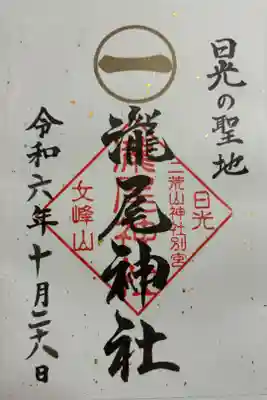 一
日光の聖地
瀧尾神社
令和六年十月二十八日
日光
二荒山神社別宮
瀧尾神社
女峰山